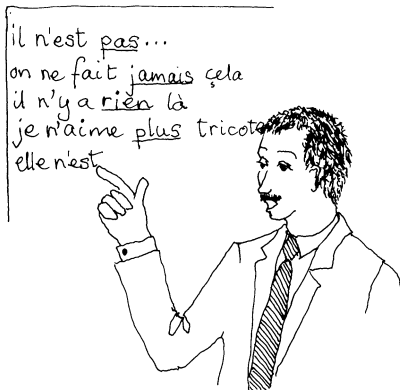 il n'est pas...
on ne fait jamais çela
il n'y a rien là
je n'aime plus tricote
elle n'est